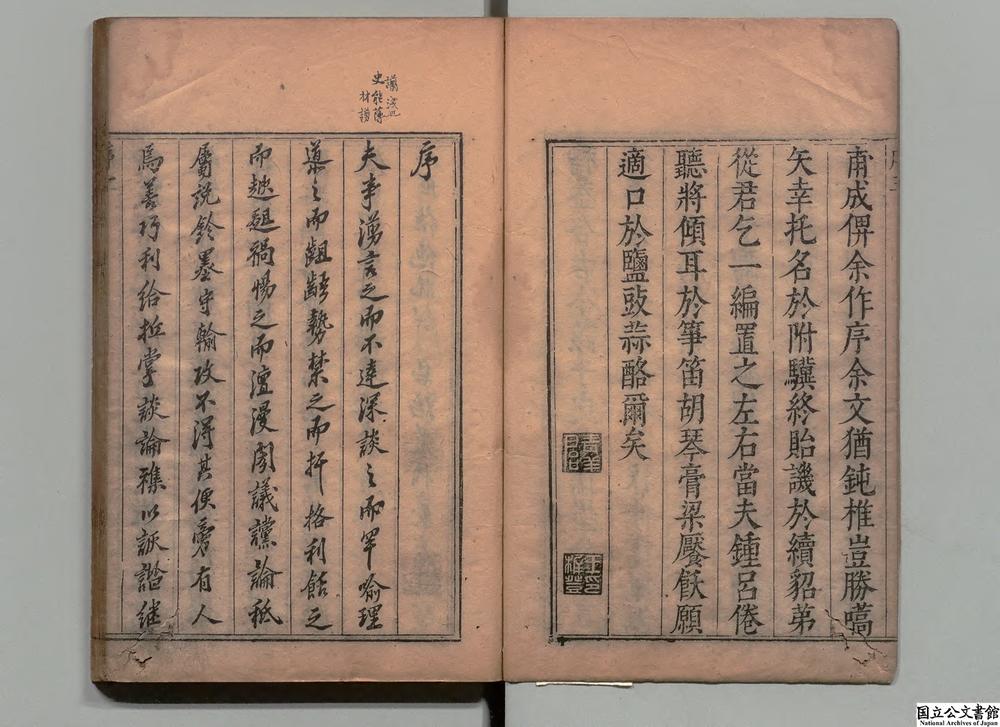 甭成俾余作序余文猶鈍椎豈勝嚆
矢幸托名於附驥終貽譏於續貂弟
從君乞一編置之左右當夫鍾呂倦
聽將傾耳於箏笛胡琴膏粱饜飫願
適口於鹽豉蒜酪爾矣
序
夫事湧言之而不達深談之而罕喻理
導之而齟齬勢禁之而扞格利餂之
而趑趄禍惕之而澶漫閎議讜論秪
屬說鈴墨守輸攻不得其便旁有人
焉善巧利給抵掌談論雜以詼諧继
国立公文書館
National Archives of Japan